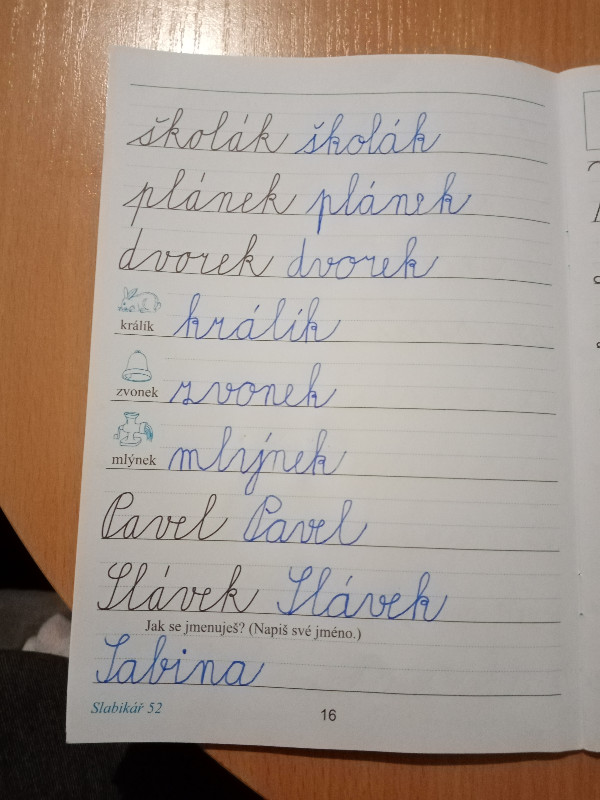 školák školák
plánek plánek
dvorek dvorek
králík králík
zvonek zvonek
mlýnek mlýnek
Pavel Pavel
Slávek Slávek
Jak se jmenuješ? (Napiš své jméno.)
Sabina
Slabikář 52
16